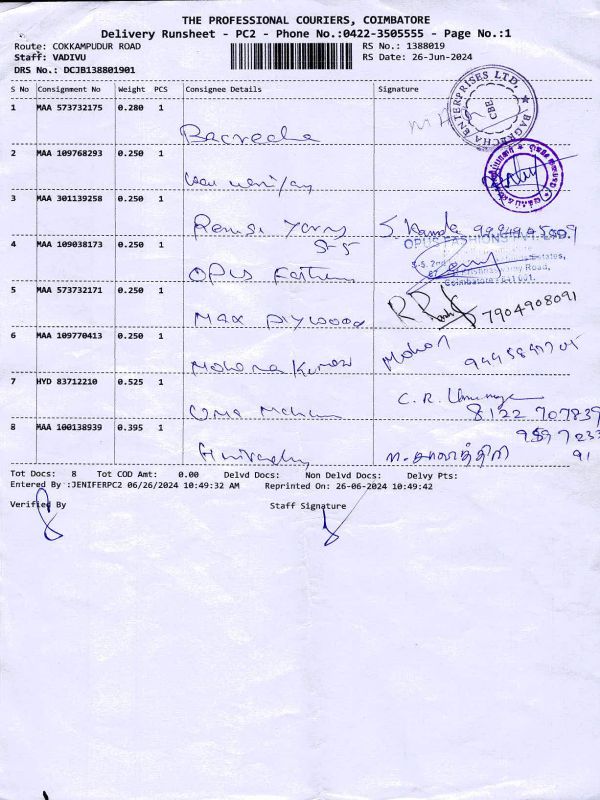 THE PROFESSIONAL COURIERS, COIMBATORE
Delivery Runsheet - PC2 - Phone No.:0422-3505555 - Page No.:1
Route: COKKAMPUDUR ROAD
RS No.: 1388019
Staff: VADIVU
RS Date: 26-Jun-2024
DRS No.: DCJB138801901
S No Consignment No Weight PCS Consignee Details Signature
1 MAA 573732175 0.280 1
BAGRECHA ENTERPRISES LTD.
CBE
2 MAA 109768293 0.250 1
3 MAA 301139258 0.250 1
S-5
4 MAA 109038173 0.250 1
OPUS FASHIONS PVT LTD
Coimbatore - 641 001.
Opus
5 MAA 573732171 0.250 1
Max Plywood
7904908091
6 MAA 109770413 0.250 1
Mohona Kumar Mohan
7 HYD 83712210 0.525 1
Uma C.R.
8122 707839
8 MAA 100138939 0.395 1
Tot Docs: 8 Tot COD Amt: 0.00 Delvd Docs: Non Delvd Docs: Delvy Pts:
Entered By :JENIFERPC2 06/26/2024 10:49:32 AM Reprinted On: 26-06-2024 10:49:42
Verified By Staff Signature